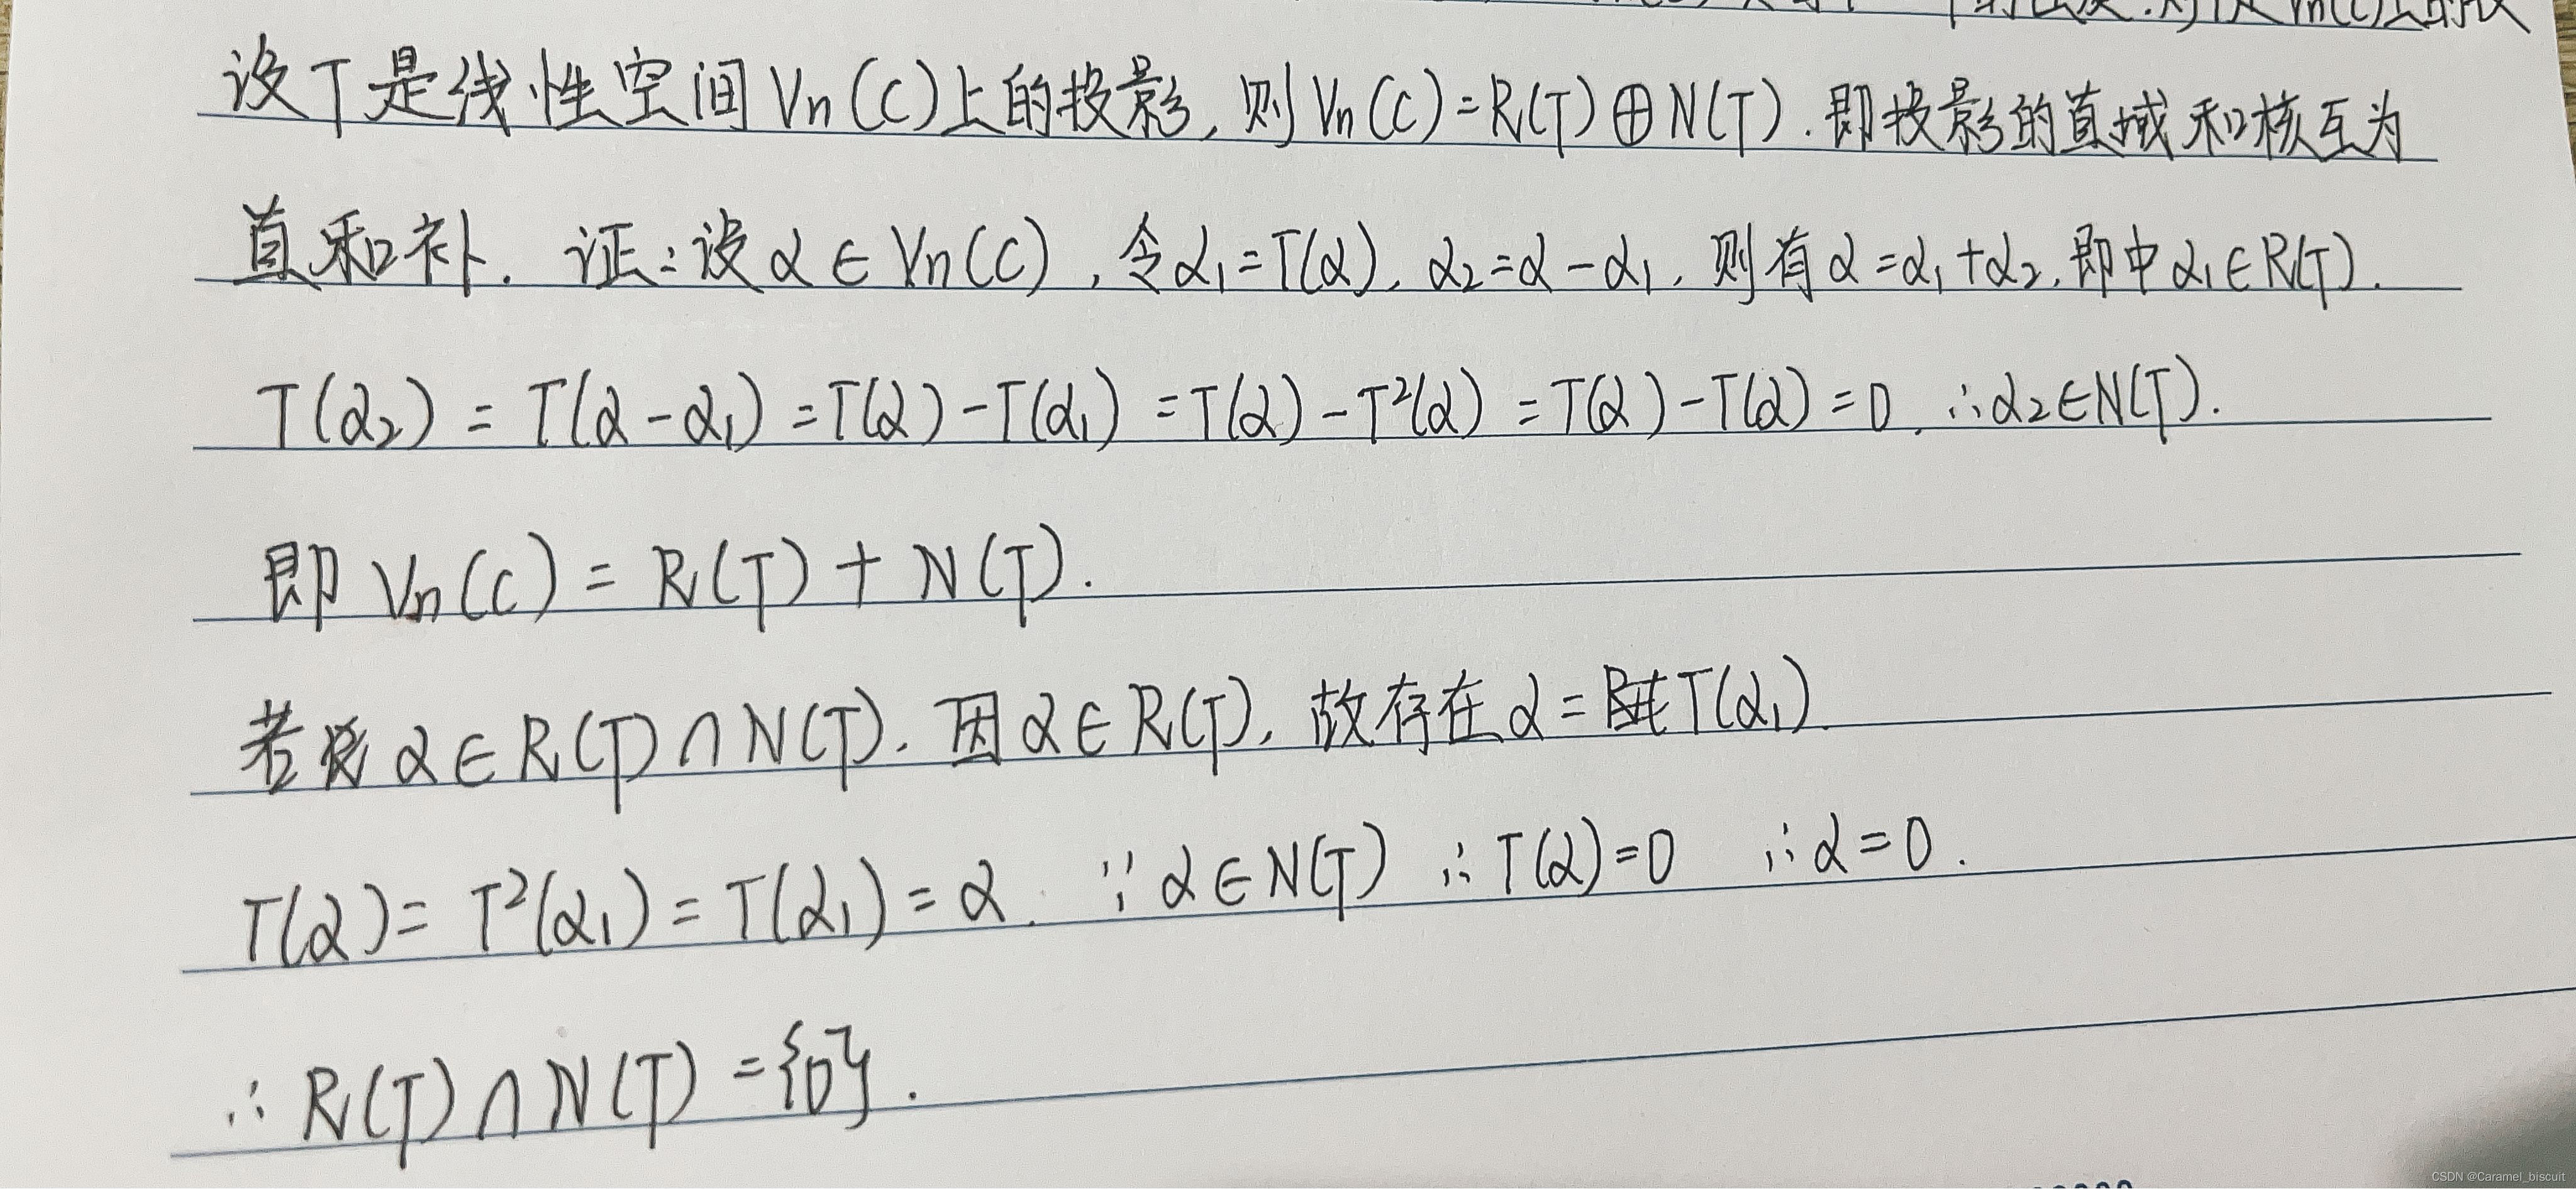 设T是线性空间Vn(C)上的投影,则Vn(C)=R(T)⊕N(T).即投影的直域和核互为
直和补. 证:设α∈Vn(C),令α₁=T(α),α₂=α-α₁,则有α=α₁+α₂,即中α₁∈R(T).
T(α₂)=T(α-α₁)=T(α)-T(α₁)=T(α)-T²(α)=T(α)-T(α)=0.∴α₂∈N(T).
即Vn(C)=R(T)+N(T).
若α∈R(T)∩N(T).因α∈R(T),故存在α=T(α₁)
T(α)=T²(α₁)=T(α₁)=α. ∵α∈N(T) ∴T(α)=0 ∴α=0.
∴R(T)∩N(T)={0}.
CSDN @Caramel_biscuit